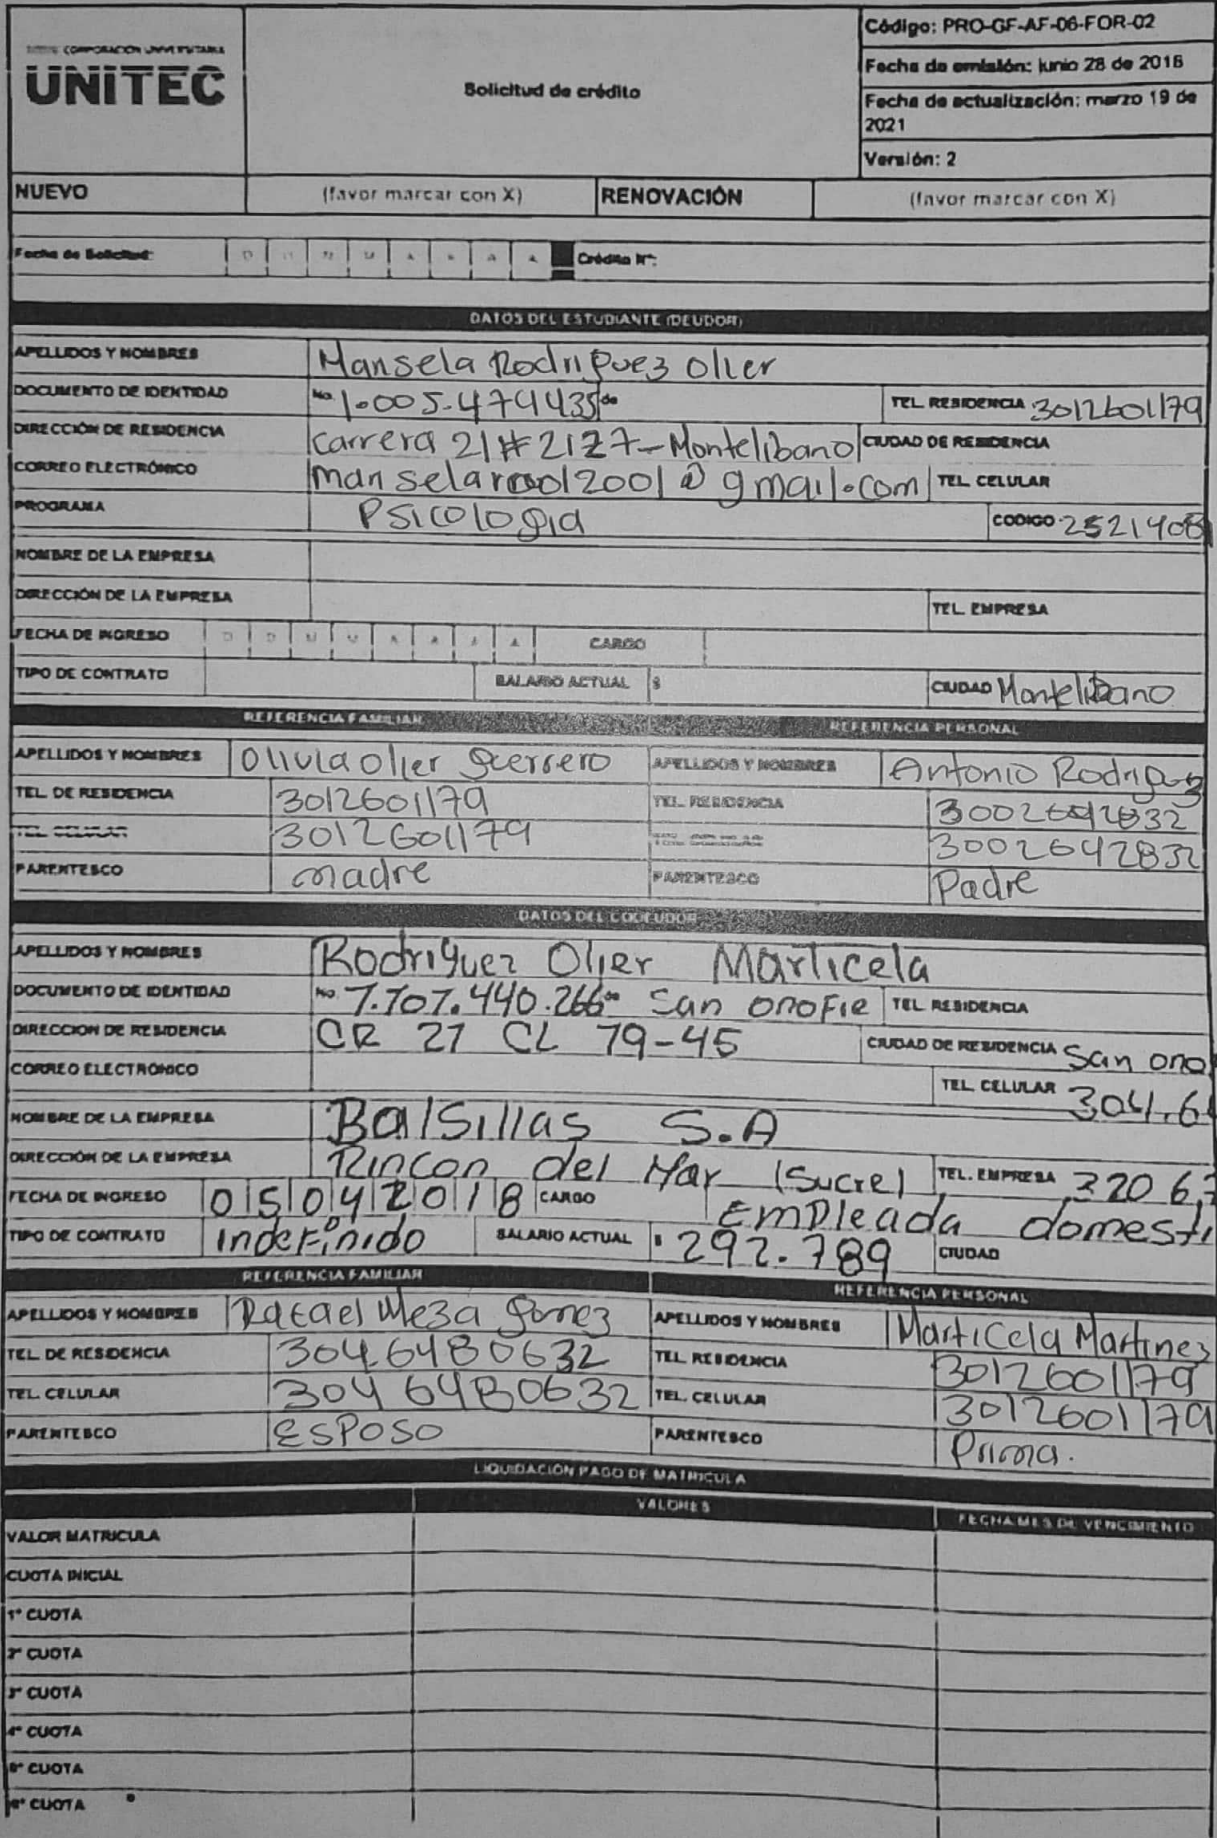 CORPORACIÓN UNIVERSITARIA
UNITEC
Solicitud de crédito
Código: PRO-GF-AF-06-FOR-02
Fecha de emisión: junio 28 de 2016
Fecha de actualización: marzo 19 de
2021
Versión: 2
NUEVO (favor marcar con X) RENOVACIÓN (favor marcar con X)
Fecha de Solicitud: D D M M A A A A Crédito N°:
DATOS DEL ESTUDIANTE (DEUDOR)
APELLIDOS Y NOMBRES Mansela Rodriguez Olier
DOCUMENTO DE IDENTIDAD No. 1.005.474435 de TEL. RESIDENCIA 3012601179
DIRECCIÓN DE RESIDENCIA carrera 21 # 2127-Montelibano CIUDAD DE RESIDENCIA
CORREO ELECTRÓNICO @gmail.com TEL. CELULAR
PROGRAMA Psicologia CODIGO 2521408
NOMBRE DE LA EMPRESA
DIRECCIÓN DE LA EMPRESA TEL. EMPRESA
FECHA DE INGRESO D D M M A A A A CARGO
TIPO DE CONTRATO SALARIO ACTUAL $ CIUDAD Montelibano
REFERENCIA FAMILIAR REFERENCIA PERSONAL
APELLIDOS Y NOMBRES Olivia Olier Guerrero APELLIDOS Y NOMBRES Antonio Rodriguez
TEL. DE RESIDENCIA 3012601179 TEL. RESIDENCIA 3002642832
TEL. CELULAR 3012601179 3002642832
PARENTESCO madre PARENTESCO Padre
DATOS DEL CODEUDOR
APELLIDOS Y NOMBRES Rodriguez Olier Marticela
DOCUMENTO DE IDENTIDAD No. 7.707.440.266 de San Onofre TEL. RESIDENCIA
DIRECCION DE RESIDENCIA CR 21 CL 79-45 CIUDAD DE RESIDENCIA San ono
CORREO ELECTRÓNICO TEL. CELULAR 304.6
NOMBRE DE LA EMPRESA BalSillas S.A
DIRECCIÓN DE LA EMPRESA Rincon del Mar (Sucre) TEL. EMPRESA 320 6
FECHA DE INGRESO 05042018 CARGO Empleada domesti
TIPO DE CONTRATO indefinido SALARIO ACTUAL $ 292.789 CIUDAD
REFERENCIA FAMILIAR REFERENCIA PERSONAL
APELLIDOS Y NOMBRES Rafael Meza Gomez APELLIDOS Y NOMBRES Marticela Martinez
TEL. DE RESIDENCIA 3046480632 TEL. RESIDENCIA 3012601179
TEL. CELULAR 3046480632 TEL. CELULAR 3012601179
PARENTESCO ESPOSO PARENTESCO Prima.
LIQUIDACIÓN PAGO DE MATRICULA
VALORES FECHA MES DE VENCIMIENTO
VALOR MATRICULA
CUOTA INICIAL
1ª CUOTA
2ª CUOTA
3ª CUOTA
4ª CUOTA
5ª CUOTA
6ª CUOTA